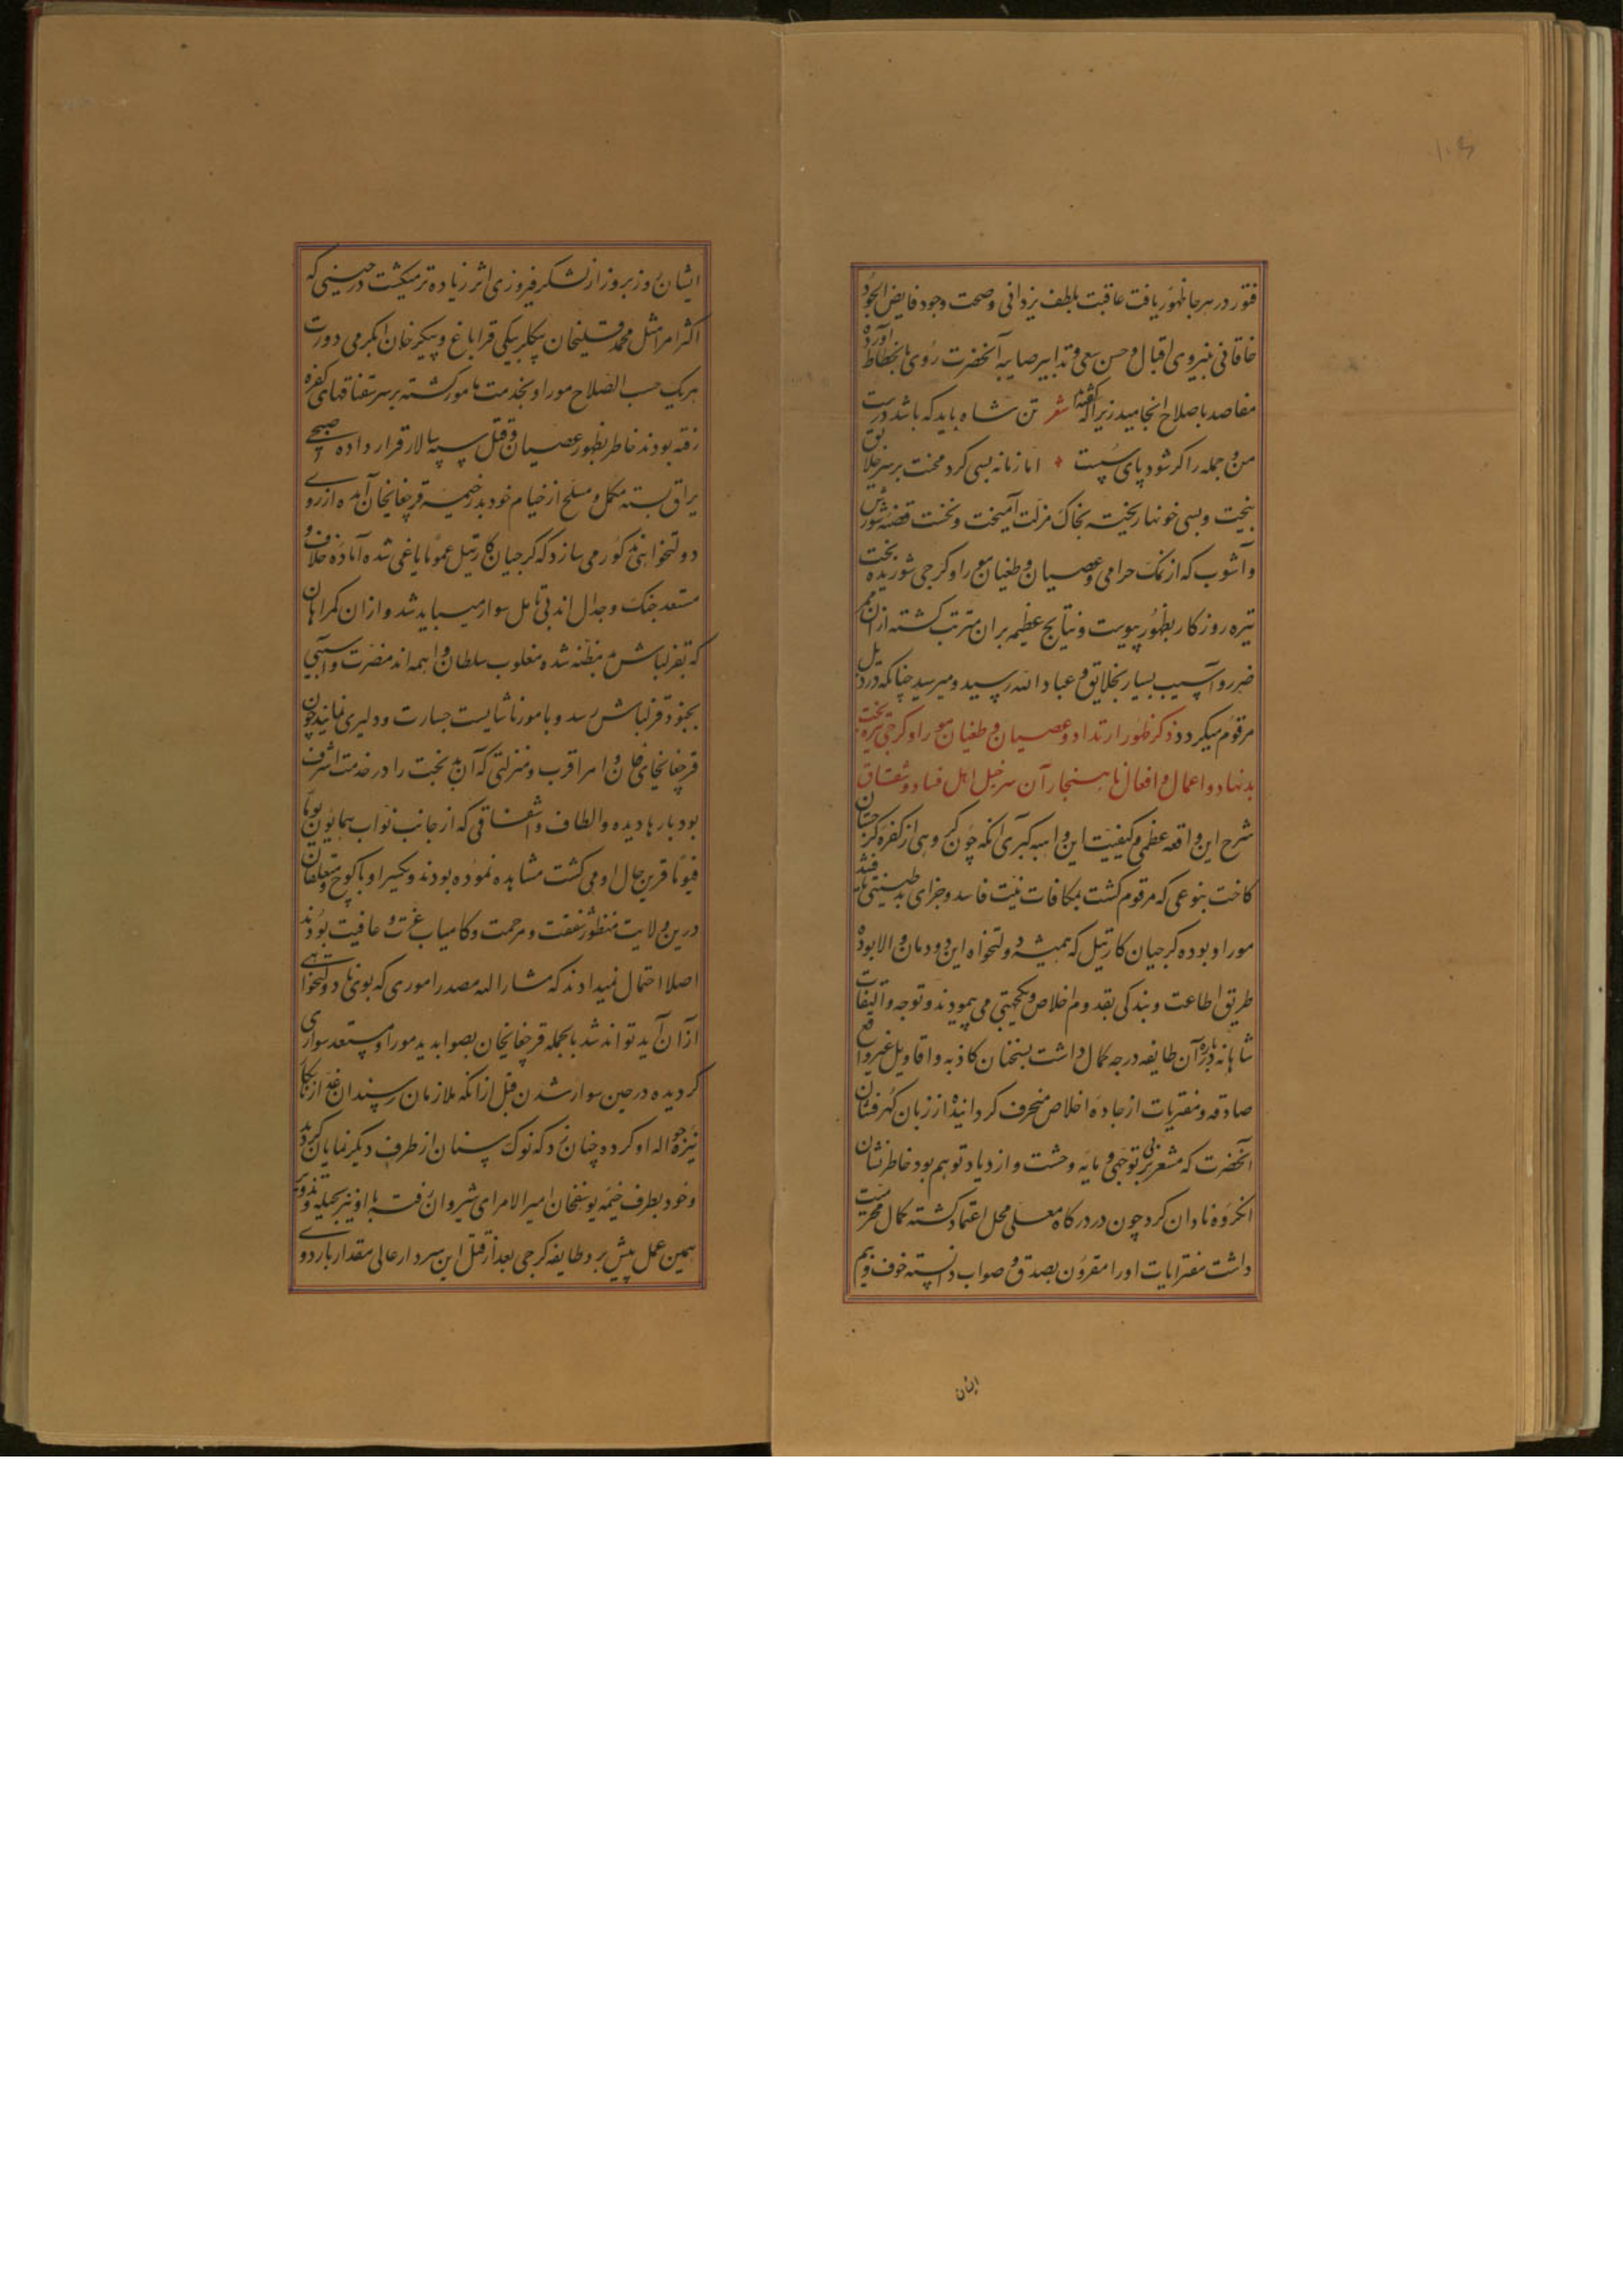 فتور در هر جا ظهور یافت عاقبت بلطف یزدانی و صحت وجود فایض الجود
خاقانی نیروی اقبال و حسن سعی و تدابیر صایبه آنحضرت روی بانحطاط آورده
مفاصد باصلاح انجامید زیرا که گفته‌اند شعر تن شاه باید که باشد درست
من و جمله را گر شود پای سست اما زمانه بسی گرد محنت بر سر خلایق
بیخت و بسی خونها ریخته بخاک مزلت آمیخت و نخست قضیه شورش
و آشوب که از نمک حرامی و عصیان و طغیان موراو گرجی شوریده بخت
تیره روزگار بظهور پیوست و نتایج عظیمه بران مترتب گشته ازان ممر
ضرر و آسیب بسیار بخلایق و عباد الله رسید و میرسد چنانکه در ذیل
مرقوم میگردد ذکر ظهور ارتداد و عصیان و طغیان موراو گرجی تیره بخت
بدنهاد و اعمال و افعال ناهنجار آن سرخیل اهل فساد و شقاق
شرح این واقعه عظمی و کیفیت این داهیه کبری آنکه چون گروهی از کفره گرجستان
کاخت بنوعی که مرقوم گشت بمکافات نیت فاسد و جزای بدطینتی
موراو بوده گرجیان کارتیل که همیشه دولتخواه این دودمان والا بوده
طریق اطاعت و بندگی بقدوم اخلاص و یکجهتی می پیمودند و توجه و التفات
شاهانه درباره آن طایفه درجه کمال داشت بسخنان کاذبه و اقاویل غیر واقع
صادقه و مفتریات از جاده اخلاص منحرف گردانیده از زبان گهرفشان
آنحضرت که مشعر بر بی توجهی و مایه وحشت و ازدیاد توهم بود خاطرنشان
انگروه نادان کرد چون در درگاه معلی محل اعتماد گشته کمال محرمیت
داشت مفتریات او را مقرون بصدق و صواب دانسته خوف و بیم
ایشان
ایشان روز بروز از لشکر فیروزی اثر زیاده تر میگشت در حینی که
اکثر امرا مثل محمد قلیخان بیگلربیگی قراباغ و پیکر خان ایگرمی دورت
هریک حسب الصلاح موراو بخدمت مامور گشته بر سر سقناقهای کفره
رفته بودند خاطر بظهور عصیان و قتل سپه سالار قرار داده صبحی
یراق بسته مکمل و مسلح از خیام خود بدر خیمه قرچغایخان آمده از روی
دولتخواهی مذکور می سازد که گرجیان کارتیل عموما یاغی شده آماده خلاف و
مستعد جنگ و جدال اند بی تامل سوار میباید شد و ازان گمراهان
که بقزلباش بد مظنه شده مغلوب سلطان واهمه اند مضرت و آسیبی
بجنود قزلباش رسد و بامور ناشایست جسارت و دلیری نمایند چون
قرچغایخان و امرا قرب و منزلتی که آن بدبخت را در خدمت اشرف
بود بارها دیده و الطاف و اشفاقی که از جانب نواب همایون یوما
فیوما قرین حال او می گشت مشاهده نموده بودند و یکسر او با کوچ و متعلقان
درین ولایت منظور شفقت و مرحمت و کامیاب عزت و عافیت بودند
اصلا احتمال نمیدادند که مشار الیه مصدر اموری که بوی نادولتخواهی
ازان آید تواند شد بالجمله قرچغایخان بصوابدید موراو مستعد سواری
گردیده در حین سوار شدن قبل ازانکه ملازمان رسند ان غدار نابکار
نیزه حواله او کرده چنان زد که نوک سنان از طرف دیگر نمایان گردید
و خود بطرف خیمه یوسفخان امیر الامرای شیروان رفته با او نیز بحیله و تذویر
همین عمل پیش برد طایفه گرجی بعد از قتل این سردار عالی مقدار باردوی